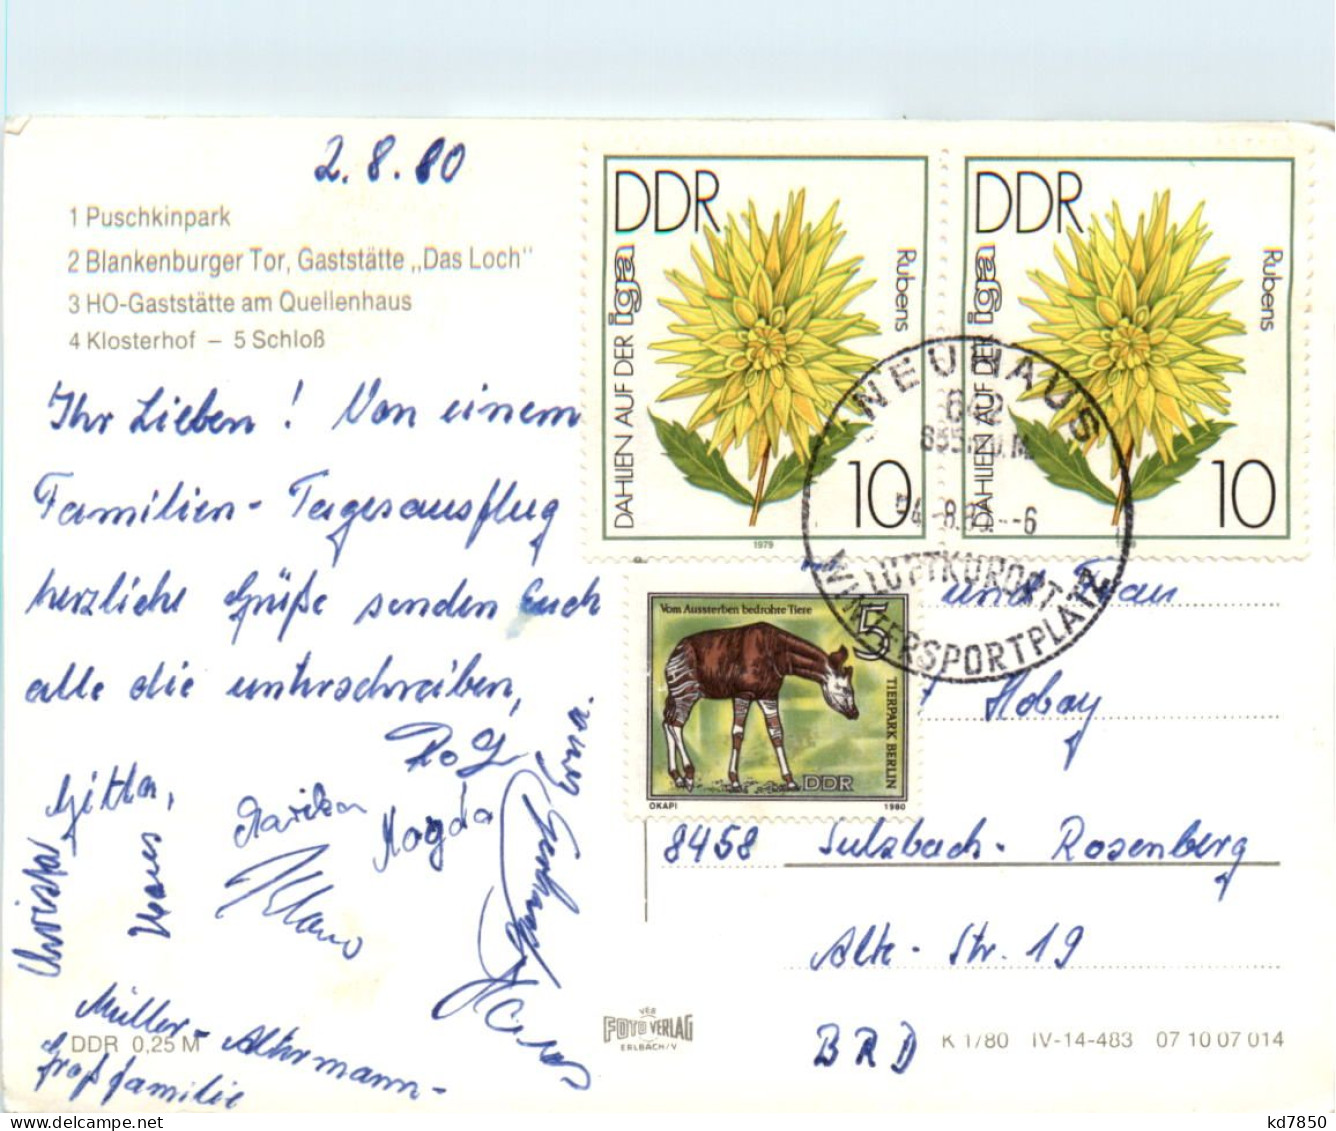 2.8.80
1 Puschkinpark
2 Blankenburger Tor, Gaststätte „Das Loch"
3 HO-Gaststätte am Quellenhaus
4 Klosterhof – 5 Schloß
Ihr Lieben! Von einem
Familien-Tagesausflug
herzliche Grüße senden Euch
alle die unterschreiben,
Gitta,
Marika
Magda
Christa
Hans
Klaus
Müller-Altermann-
Großfamilie
DDR 0,25 M
DDR
DAHLIEN AUF DER iga
Rubens
10
1979
DDR
DAHLIEN AUF DER iga
Rubens
10
NEUHAUS
642
LUFTKURORT
WINTERSPORTPLATZ
Vom Aussterben bedrohte Tiere
5
TIERPARK BERLIN
DDR
OKAPI 1980
und Frau
8458 Sulzbach-Rosenberg
Alte-Str. 19
BRD
VEB
FOTO VERLAG
ERLBACH/V
K 1/80 IV-14-483 07 10 07 014
kd7850